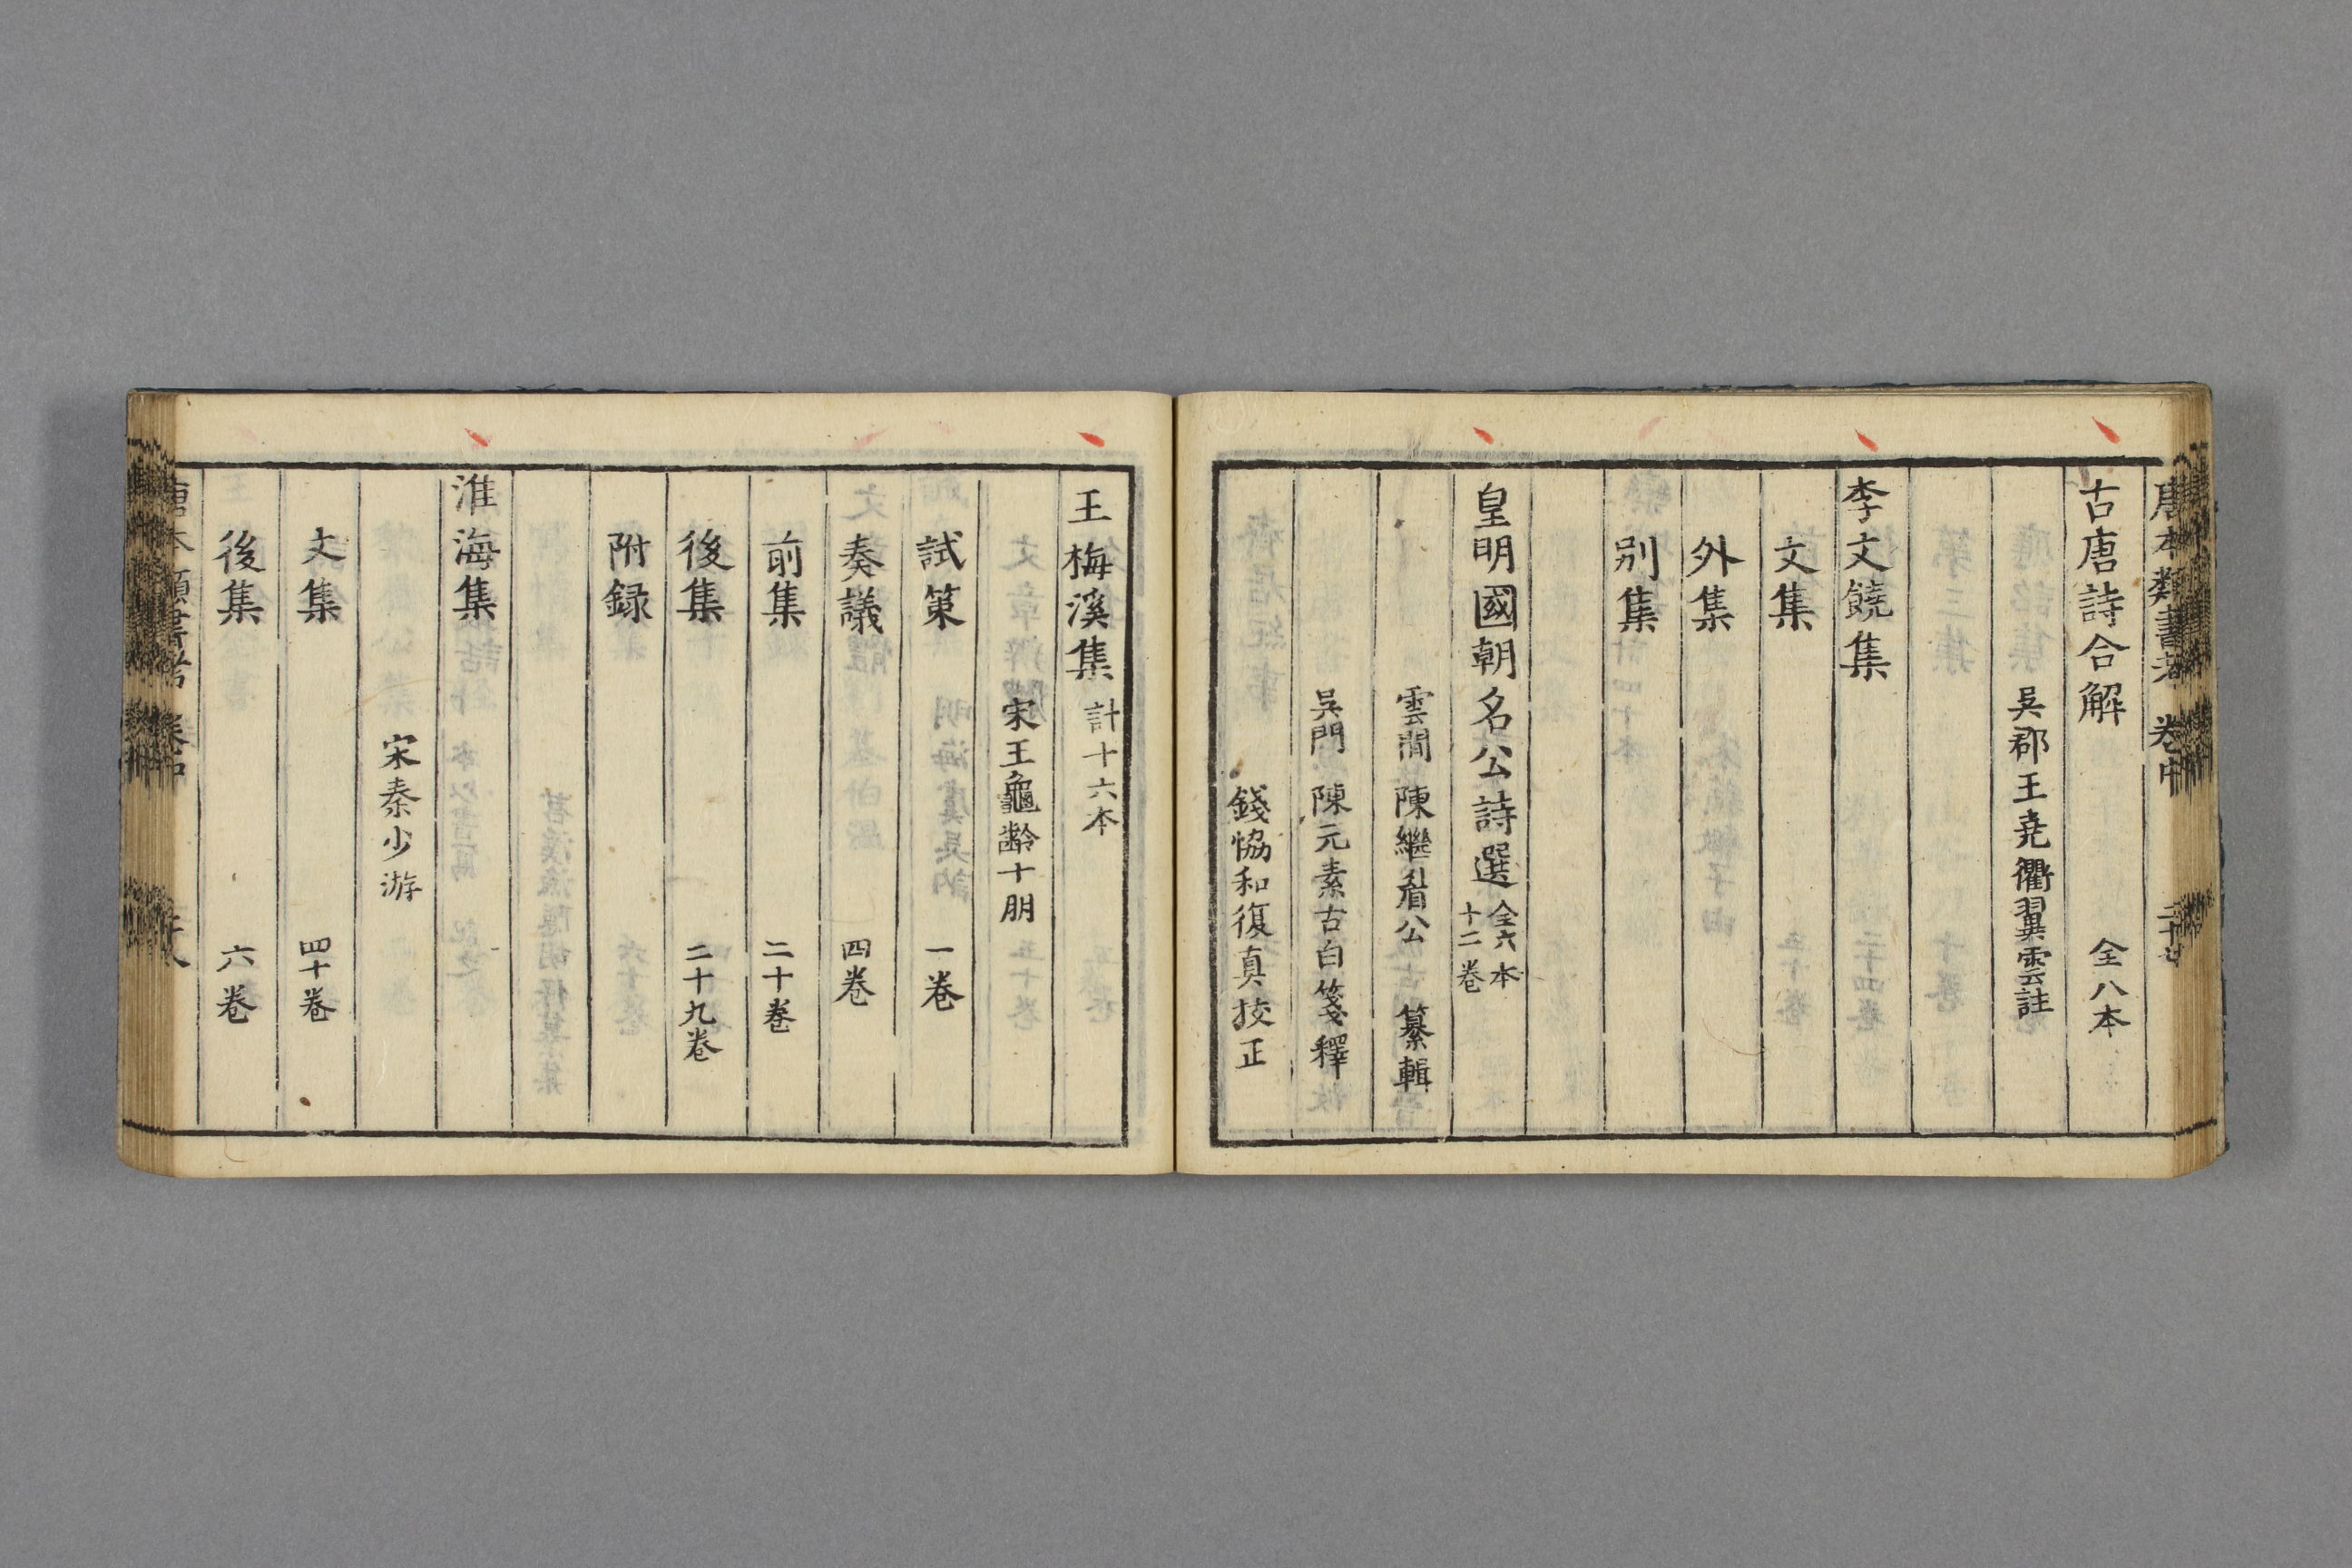 唐本類書考 卷中
古唐詩合解 全八本
吳郡王堯衢翼雲註
李文饒集
文集
外集
別集
皇明國朝名公詩選 全六本 十二卷
雲間 陳繼眉公 纂輯
吳門 陳元素古白箋釋
錢恊和復真挍正
王梅溪集 計十六本
宋王龜齡十朋
試策 一卷
奏議 四卷
前集 二十卷
後集 二十九卷
附録
淮海集
宋秦少游
文集 四十卷
後集 六卷
唐本類書考 卷中